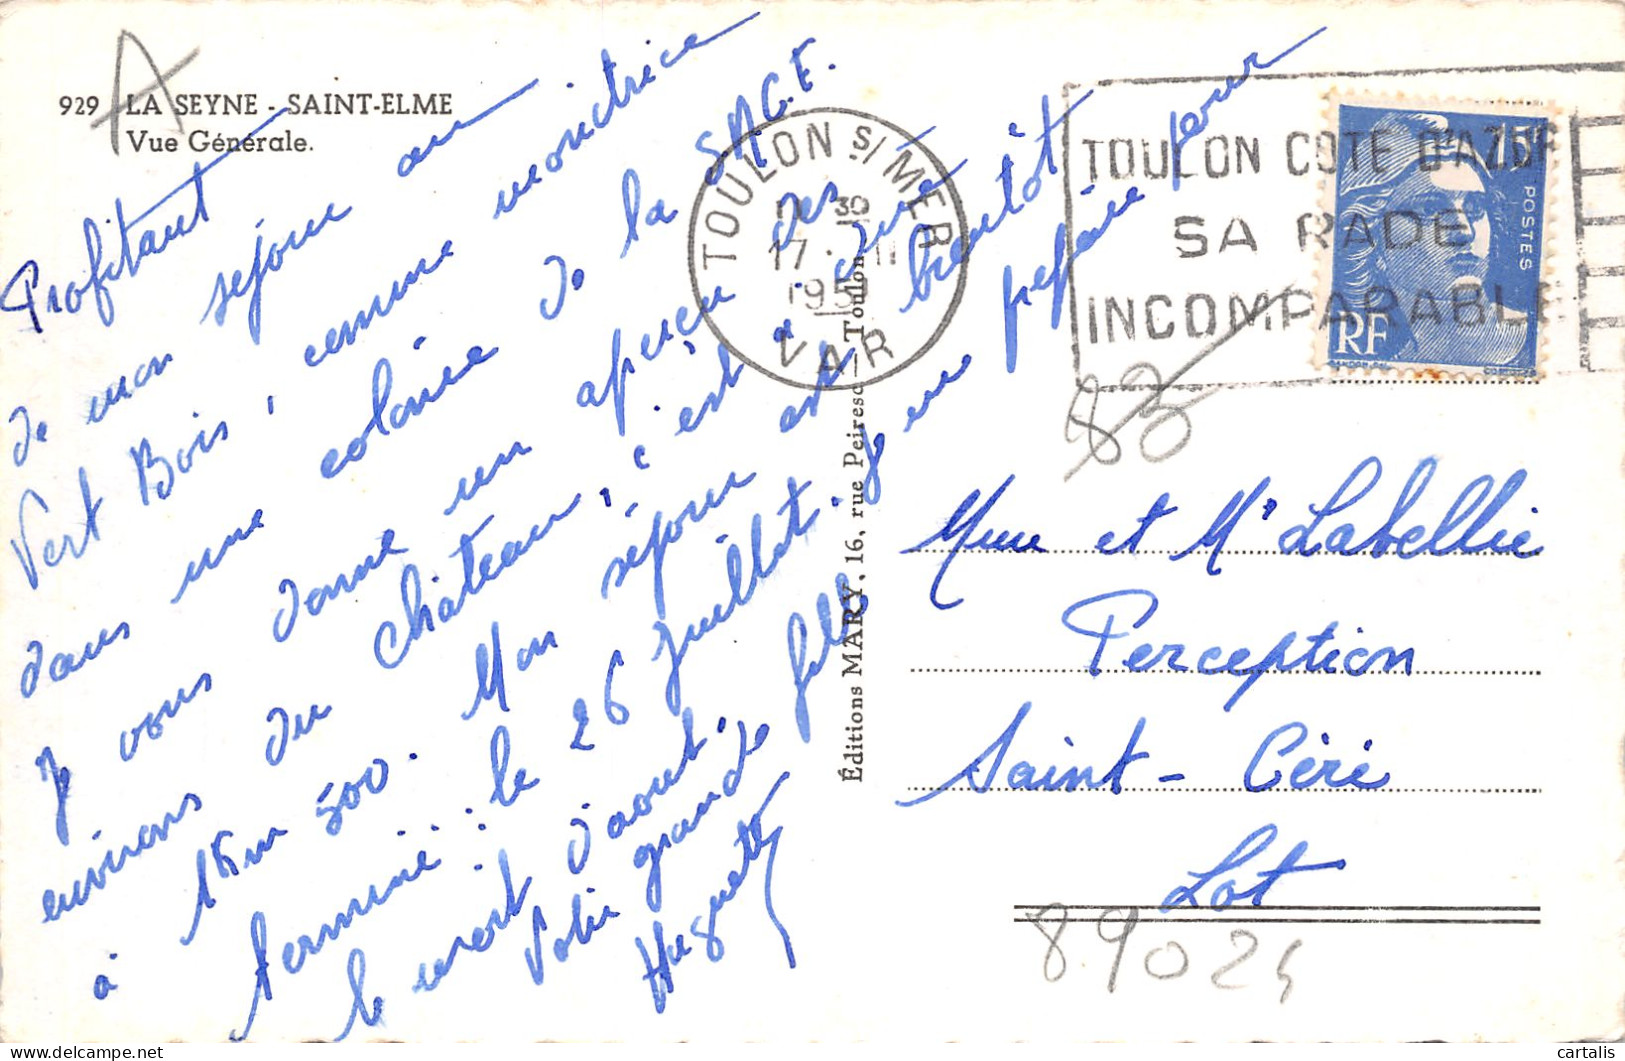 929 LA SEYNE - SAINT-ELME
Vue Générale.
A
Profitant
de mon séjour au
Vert Bois, comme monitrice
dans une colonie de la S.N.C.F.
Je vous donne un aperçu des
environs du château, c'est à
à 1km 500. Mon séjour est bientôt
terminé : le 26 juillet. J'en repars pour
le mont d'août.
Votre grande fille
Huguette
Éditions MARY, 16, rue Peiresc — Toulon
TOULON S/MER
30
17
195
VAR
TOULON COTE D'AZUR
SA RADE
INCOMPARABLE
15F
POSTES
RF
83
Mme et Mr Labellie
Perception
Saint-Céré
Lot
89024
cartalis